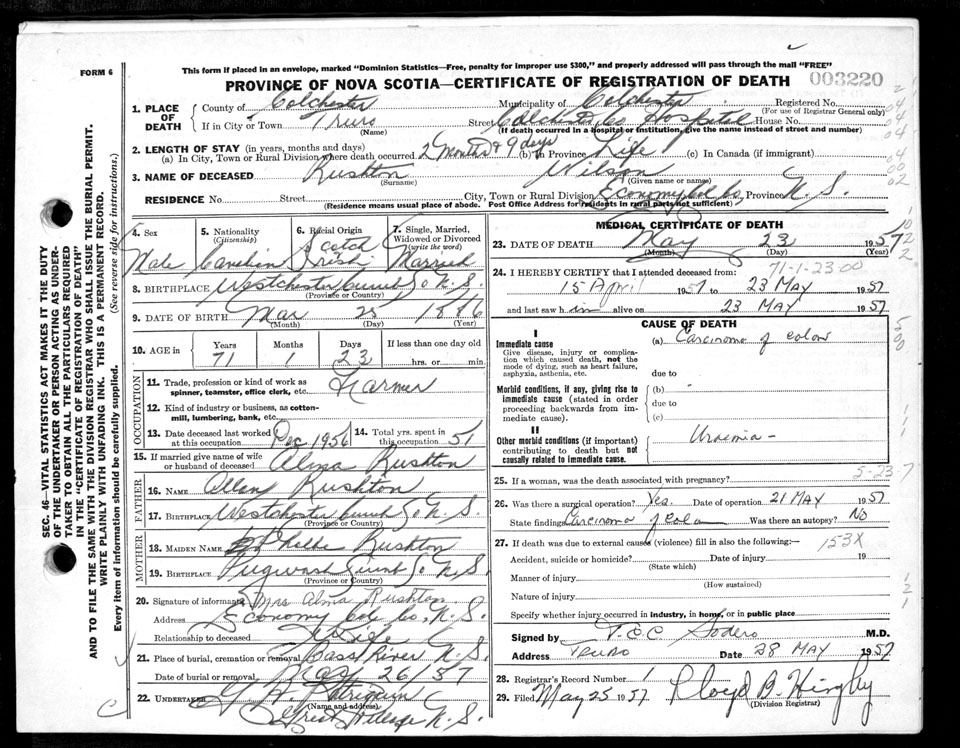 FORM 6
This form if placed in an envelope, marked "Dominion Statistics—Free, penalty for improper use $300," and properly addressed will pass through the mail "FREE"
PROVINCE OF NOVA SCOTIA—CERTIFICATE OF REGISTRATION OF DEATH
003220
1. PLACE OF DEATH
County of Colchester Municipality of Colchester Registered No.
(For use of Registrar General only)
If in City or Town Truro Street Colchester Co Hospital House No.
(Name) (If death occurred in a hospital or institution, give the name instead of street and number)
2. LENGTH OF STAY (in years, months and days)
(a) In City, Town or Rural Division where death occurred 2 months & 9 days (b) in Province Life (c) In Canada (if immigrant)
3. NAME OF DECEASED Rushton Wilson
(Surname) (Given name or names)
RESIDENCE No. Street City, Town or Rural Division Economy Col Co Province N. S.
(Residence means usual place of abode. Post Office Address for residents in rural parts not sufficient)
SEC. 46—VITAL STATISTICS ACT MAKES IT THE DUTY
OF THE UNDERTAKER OR PERSON ACTING AS UNDER-
TAKER TO OBTAIN ALL THE PARTICULARS REQUIRED
IN THE "CERTIFICATE OF REGISTRATION OF DEATH"
AND TO FILE THE SAME WITH THE DIVISION REGISTRAR WHO SHALL ISSUE THE BURIAL PERMIT.
WRITE PLAINLY WITH UNFADING INK. THIS IS A PERMANENT RECORD.
Every item of information should be carefully supplied. (See reverse side for instructions.)
4. Sex
5. Nationality
(Citizenship)
6. Racial Origin
7. Single, Married, Widowed or Divorced
(write the word)
Male
Scotch Irish
Married
8. BIRTHPLACE Westchester Cumb Co N. S.
(Province or Country)
9. DATE OF BIRTH Mar 25 1886
(Month) (Day) (Year)
10. AGE in
Years Months Days If less than one day old
71 1 23 hrs. or min.
OCCUPATION
11. Trade, profession or kind of work as
spinner, teamster, office clerk, etc. Farmer
12. Kind of industry or business, as cotton-
mill, lumbering, bank, etc.
13. Date deceased last worked
at this occupation Dec 1956
14. Total yrs. spent in
this occupation 51
15. If married give name of wife
or husband of deceased Alma Rushton
FATHER
16. NAME Allan Rushton
17. BIRTHPLACE Westchester Cumb Co N. S.
(Province or Country)
MOTHER
18. MAIDEN NAME Rushton
19. BIRTHPLACE Pugwash Cumb Co N. S.
(Province or Country)
20. Signature of informant Mrs Alma Rushton
Address Economy Col Co, N. S.
Relationship to deceased Wife
21. Place of burial, cremation or removal Bass River N. S.
Date of burial or removal May 26/57
22. UNDERTAKER
(Name and address)
Great Village N. S.
MEDICAL CERTIFICATE OF DEATH
23. DATE OF DEATH May 23 1957
(Month) (Day) (Year)
24. I HEREBY CERTIFY that I attended deceased from:
71-1-23 00
15 April 1957 to 23 MAY 1957
and last saw him alive on 23 MAY 1957
CAUSE OF DEATH
I
Immediate cause
Give disease, injury or complica-
tion which caused death, not the
mode of dying, such as heart failure,
asphyxia, asthenia, etc.
(a) Carcinoma of colon
due to
Morbid conditions, if any, giving rise to
immediate cause (stated in order
proceeding backwards from im-
mediate cause).
(b)
due to
(c)
II
Other morbid conditions (if important)
contributing to death but not
causally related to immediate cause.
Uraemia -
25. If a woman, was the death associated with pregnancy?
5-23-7
26. Was there a surgical operation? Yes. Date of operation 21 MAY 1957
State findings Carcinoma of colon Was there an autopsy? No
27. If death was due to external causes (violence) fill in also the following:—
153X
Accident, suicide or homicide? Date of injury 19
(State which)
Manner of injury
(How sustained)
Nature of injury
Specify whether injury occurred in industry, in home, or in public place
Signed by T. C. C. Sodero M.D.
Address Truro Date 28 MAY 1957
28. Registrar's Record Number 1
29. Filed May 25 1957 Lloyd B. Hingley
(Division Registrar)